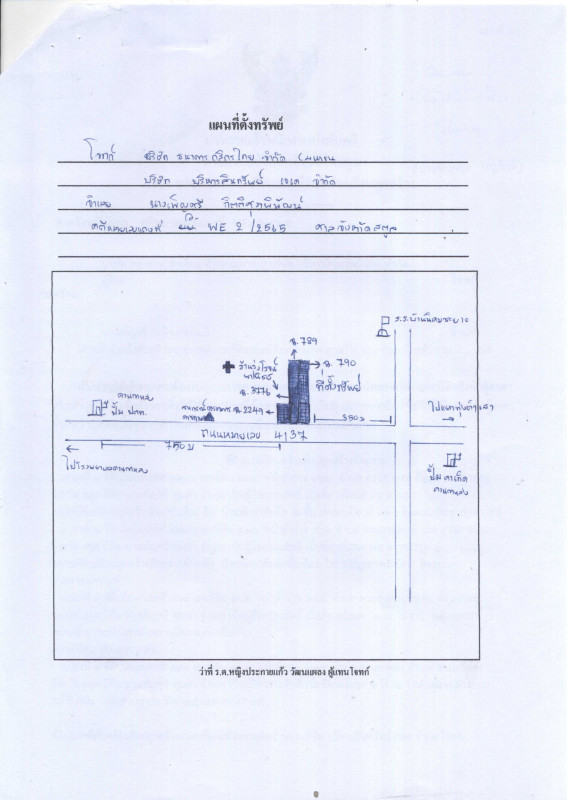 แผนที่ตั้งทรัพย์
โจทก์ บริษัท ธนาคารกสิกรไทย จำกัด (มหาชน
บริษัท บริหารสินทรัพย์ เจเค จำกัด
จำเลย นางเพ็ญศรี กิตติศุภพิพัฒน์
คดีหมายเลขแดงที่ WE 2/2565 ศาลจังหวัดสตูล
ร.ร.บ้าน
ฉ. 789
ร้าน
ฉ. 790
ที่ตั้งทรัพย์
ฉ. 3176
ควนกาหลง
ปั้ม ปตท.
สหกรณ์การเกษตร
ฉ. 2249
550 ม
ไป
ถนนหมายเลข 4137
750 ม
ไปโรงพยาบาลควนกาหลง
ปั้ม คาเท็ก
ควนกาหลง
ว่าที่ ร.ต.หญิงประกายแก้ว วัฒนแผลง ผู้แทนโจทก์